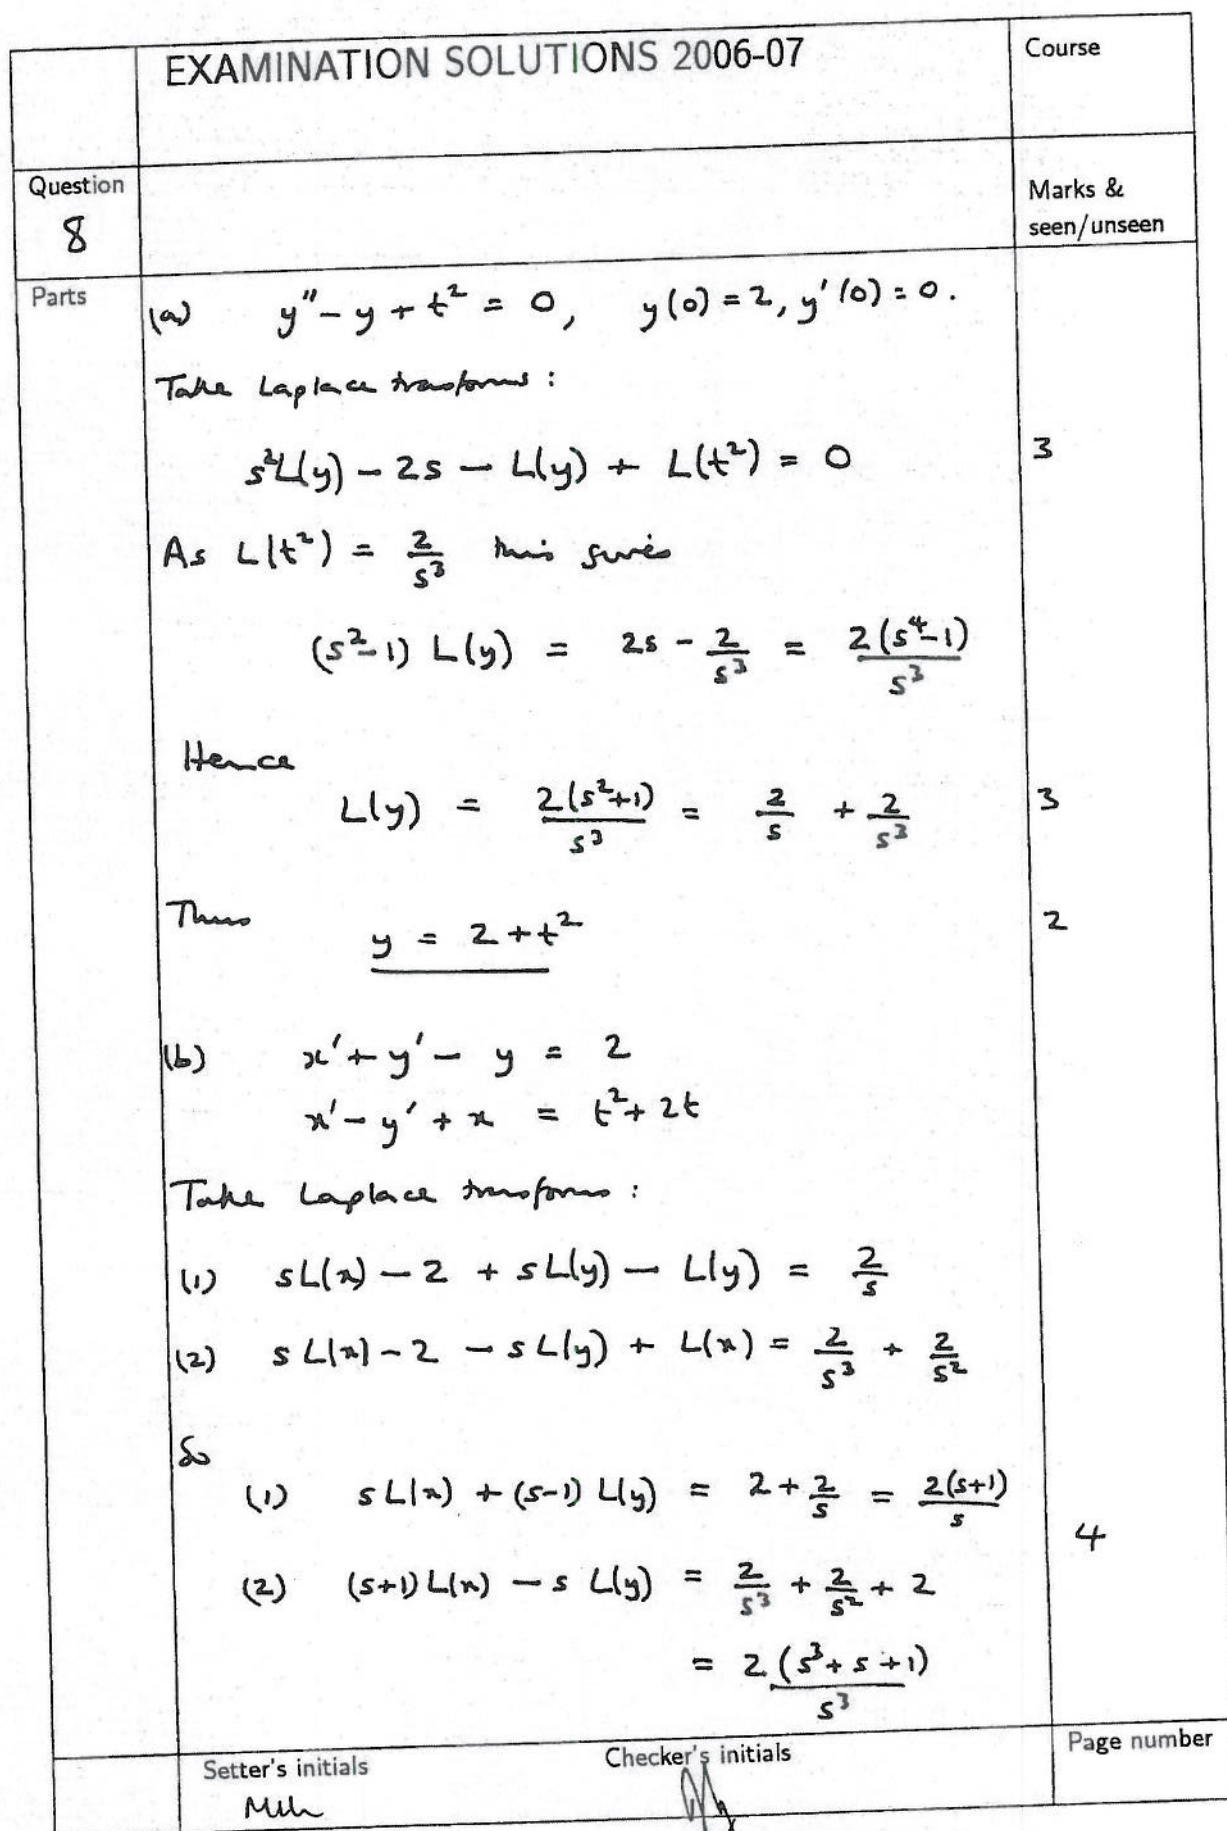 EXAMINATION SOLUTIONS 2006-07
Course
Question
8
Marks &
seen/unseen
Parts
(a) y'' - y + t² = 0, y(0) = 2, y'(0) = 0.
Take Laplace transforms:
s²L(y) - 2s - L(y) + L(t²) = 0
3
As L(t²) = 2/s³ this gives
(s²-1) L(y) = 2s - 2/s³ = 2(s⁴-1)/s³
Hence
L(y) = 2(s²+1)/s³ = 2/s + 2/s³
3
Thus
y = 2 + t²
2
(b) x' + y' - y = 2
x' - y' + x = t² + 2t
Take Laplace transforms:
(1) sL(x) - 2 + sL(y) - L(y) = 2/s
(2) sL(x) - 2 - sL(y) + L(x) = 2/s³ + 2/s²
So
(1) sL(x) + (s-1) L(y) = 2 + 2/s = 2(s+1)/s
4
(2) (s+1)L(x) - s L(y) = 2/s³ + 2/s² + 2
= 2(s³+s+1)/s³
Setter's initials
Checker's initials
Page number